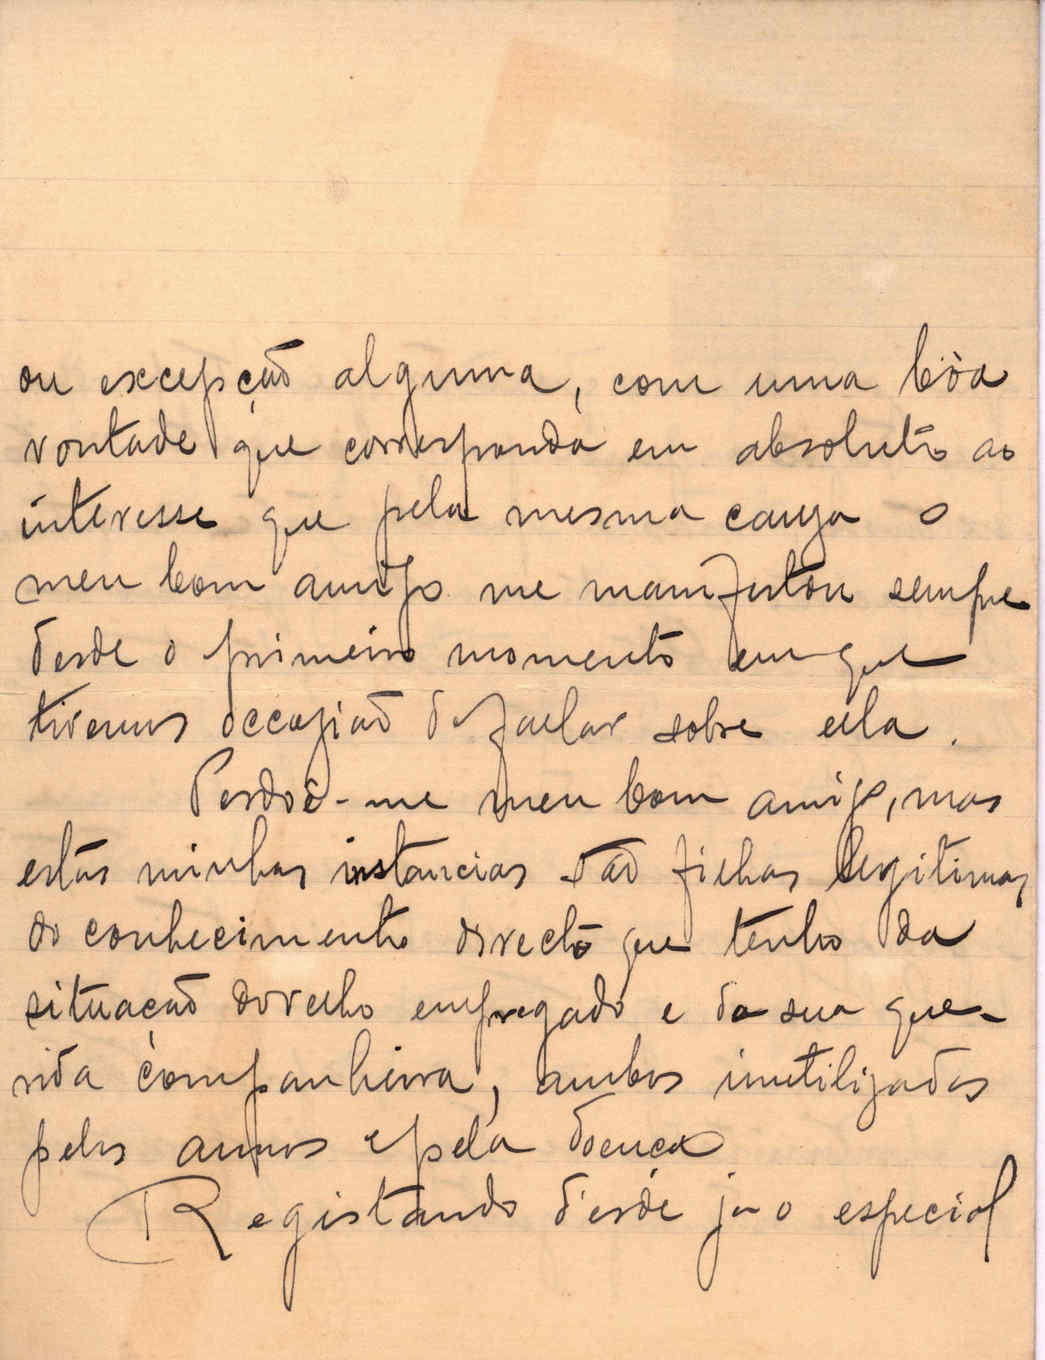 ou excepção alguma, com uma bôa
vontade que corresponda em absoluto ao
interesse que pela mesma causa o
meu bom amigo me manifestou sempre
desde o primeiro momento em que
tivemos occasião de fallar sobre ella.
Perdoê-me meu bom amigo, mas
estas minhas instancias são filhas legitimas
do conhecimento directo que tenho da
situação do velho empregado e da sua que-
rida companheira, ambos inutilizados
pelos annos e pela doença
Registando desde já o especial